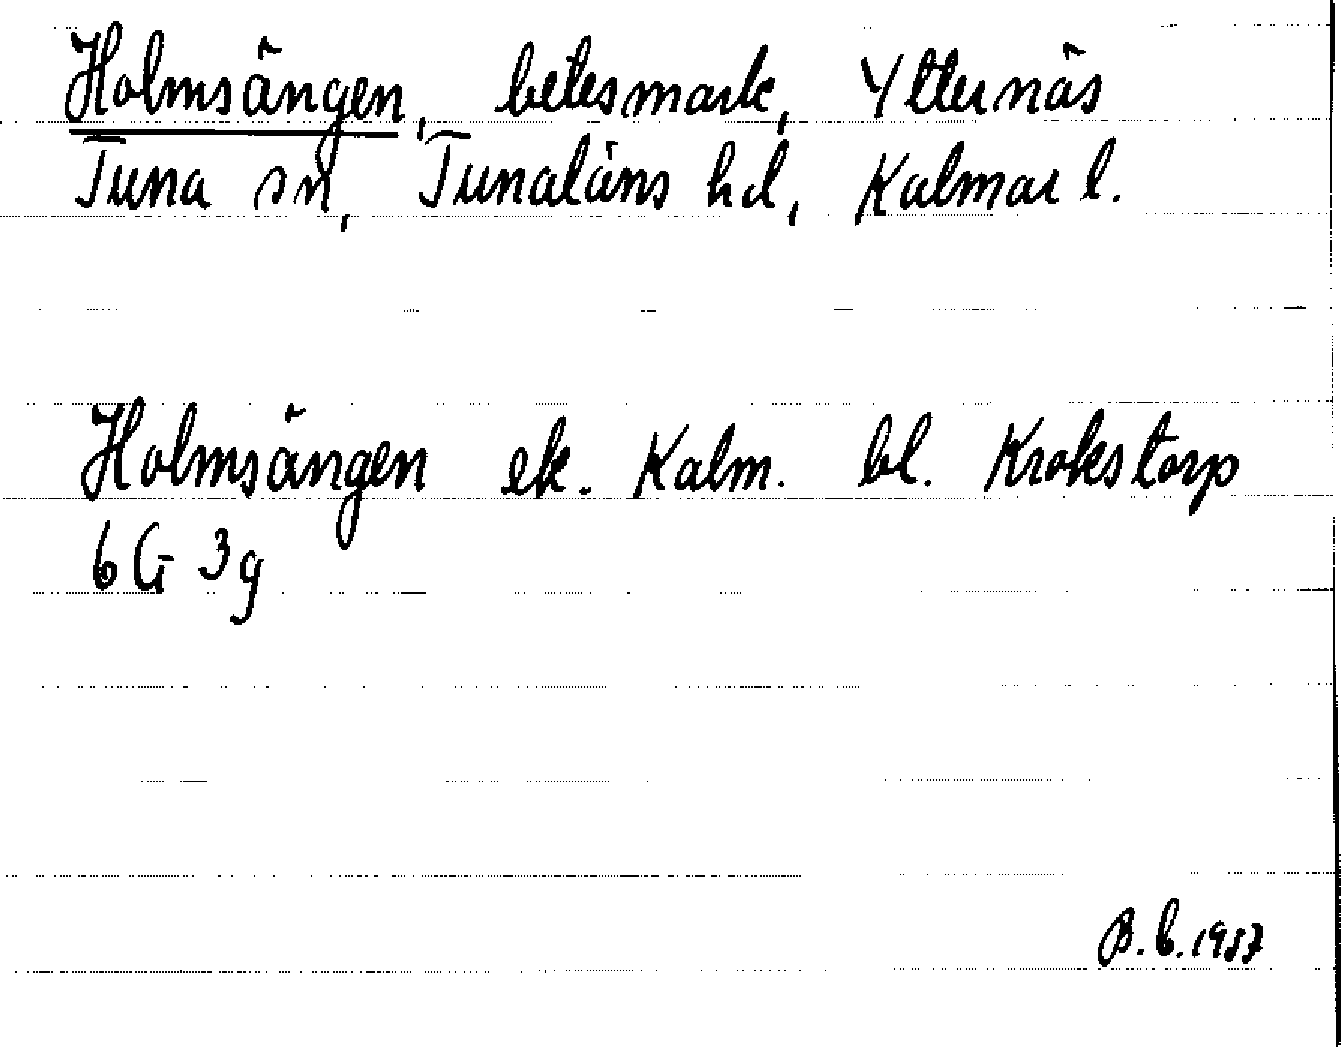 Holmsängen, betesmark, Ytternäs
Tuna sn, Tunaläns hd, Kalmar l.
Holmsängen ek. Kalm. bl. Krokstorp
6G 3g
B.L.1957